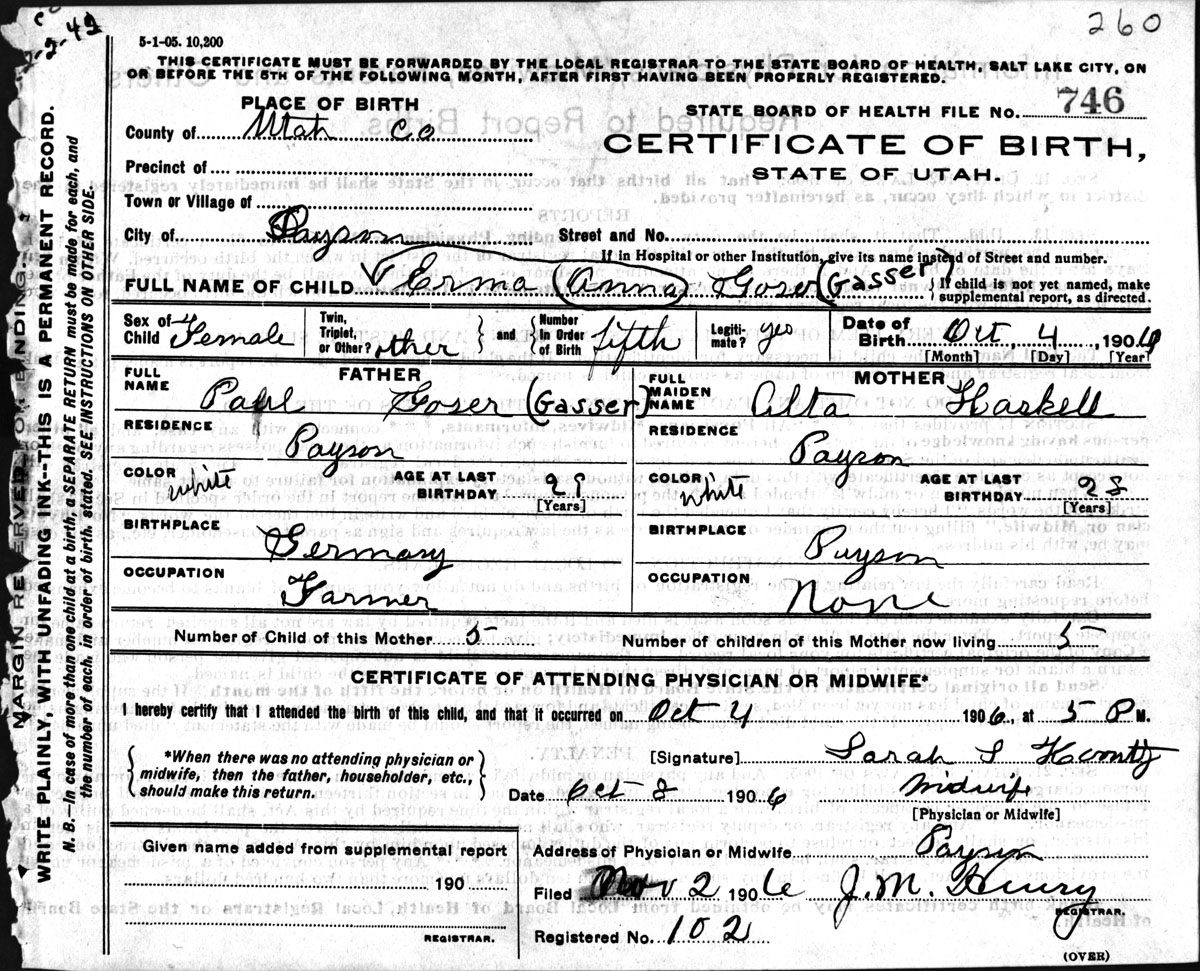 260
2-42
5-1-05. 10,200
THIS CERTIFICATE MUST BE FORWARDED BY THE LOCAL REGISTRAR TO THE STATE BOARD OF HEALTH, SALT LAKE CITY, ON
OR BEFORE THE 5TH OF THE FOLLOWING MONTH, AFTER FIRST HAVING BEEN PROPERLY REGISTERED.
PLACE OF BIRTH
STATE BOARD OF HEALTH FILE No. 746
County of Utah Co
CERTIFICATE OF BIRTH,
Precinct of
STATE OF UTAH.
Town or Village of
City of Payson Street and No.
If in Hospital or other Institution, give its name instead of Street and number.
FULL NAME OF CHILD Erma (Anna) Goser (Gasser) { If child is not yet named, make supplemental report, as directed.
Sex of Child Female Twin, Triplet, or Other? other } and { Number in Order of Birth fifth Legiti- mate? yes Date of Birth Oct, 4 1906
[Month] [Day] [Year]
FATHER
MOTHER
FULL NAME Paul Goser (Gasser) FULL MAIDEN NAME Alta Haskell
RESIDENCE Payson RESIDENCE Payson
COLOR white AGE AT LAST BIRTHDAY 29 [Years] COLOR white AGE AT LAST BIRTHDAY 28 [Years]
BIRTHPLACE Germany BIRTHPLACE Payson
OCCUPATION Farmer OCCUPATION None
Number of Child of this Mother 5 Number of children of this Mother now living 5
CERTIFICATE OF ATTENDING PHYSICIAN OR MIDWIFE*
I hereby certify that I attended the birth of this child, and that it occurred on Oct 4 1906, at 5 P M.
{ *When there was no attending physician or midwife, then the father, householder, etc., should make this return. }
[Signature] Sarah S
Date Oct 8 1906 Midwife
[Physician or Midwife]
Given name added from supplemental report
190
REGISTRAR.
Address of Physician or Midwife Payson
Filed Nov 2 1906 J. M. Henry
REGISTRAR.
Registered No. 102
(OVER)
MARGIN RESERVED FOR BINDING.
WRITE PLAINLY, WITH UNFADING INK--THIS IS A PERMANENT RECORD.
N.B.--In case of more than one child at a birth, a SEPARATE RETURN must be made for each, and
the number of each, in order of birth, stated. SEE INSTRUCTIONS ON OTHER SIDE.